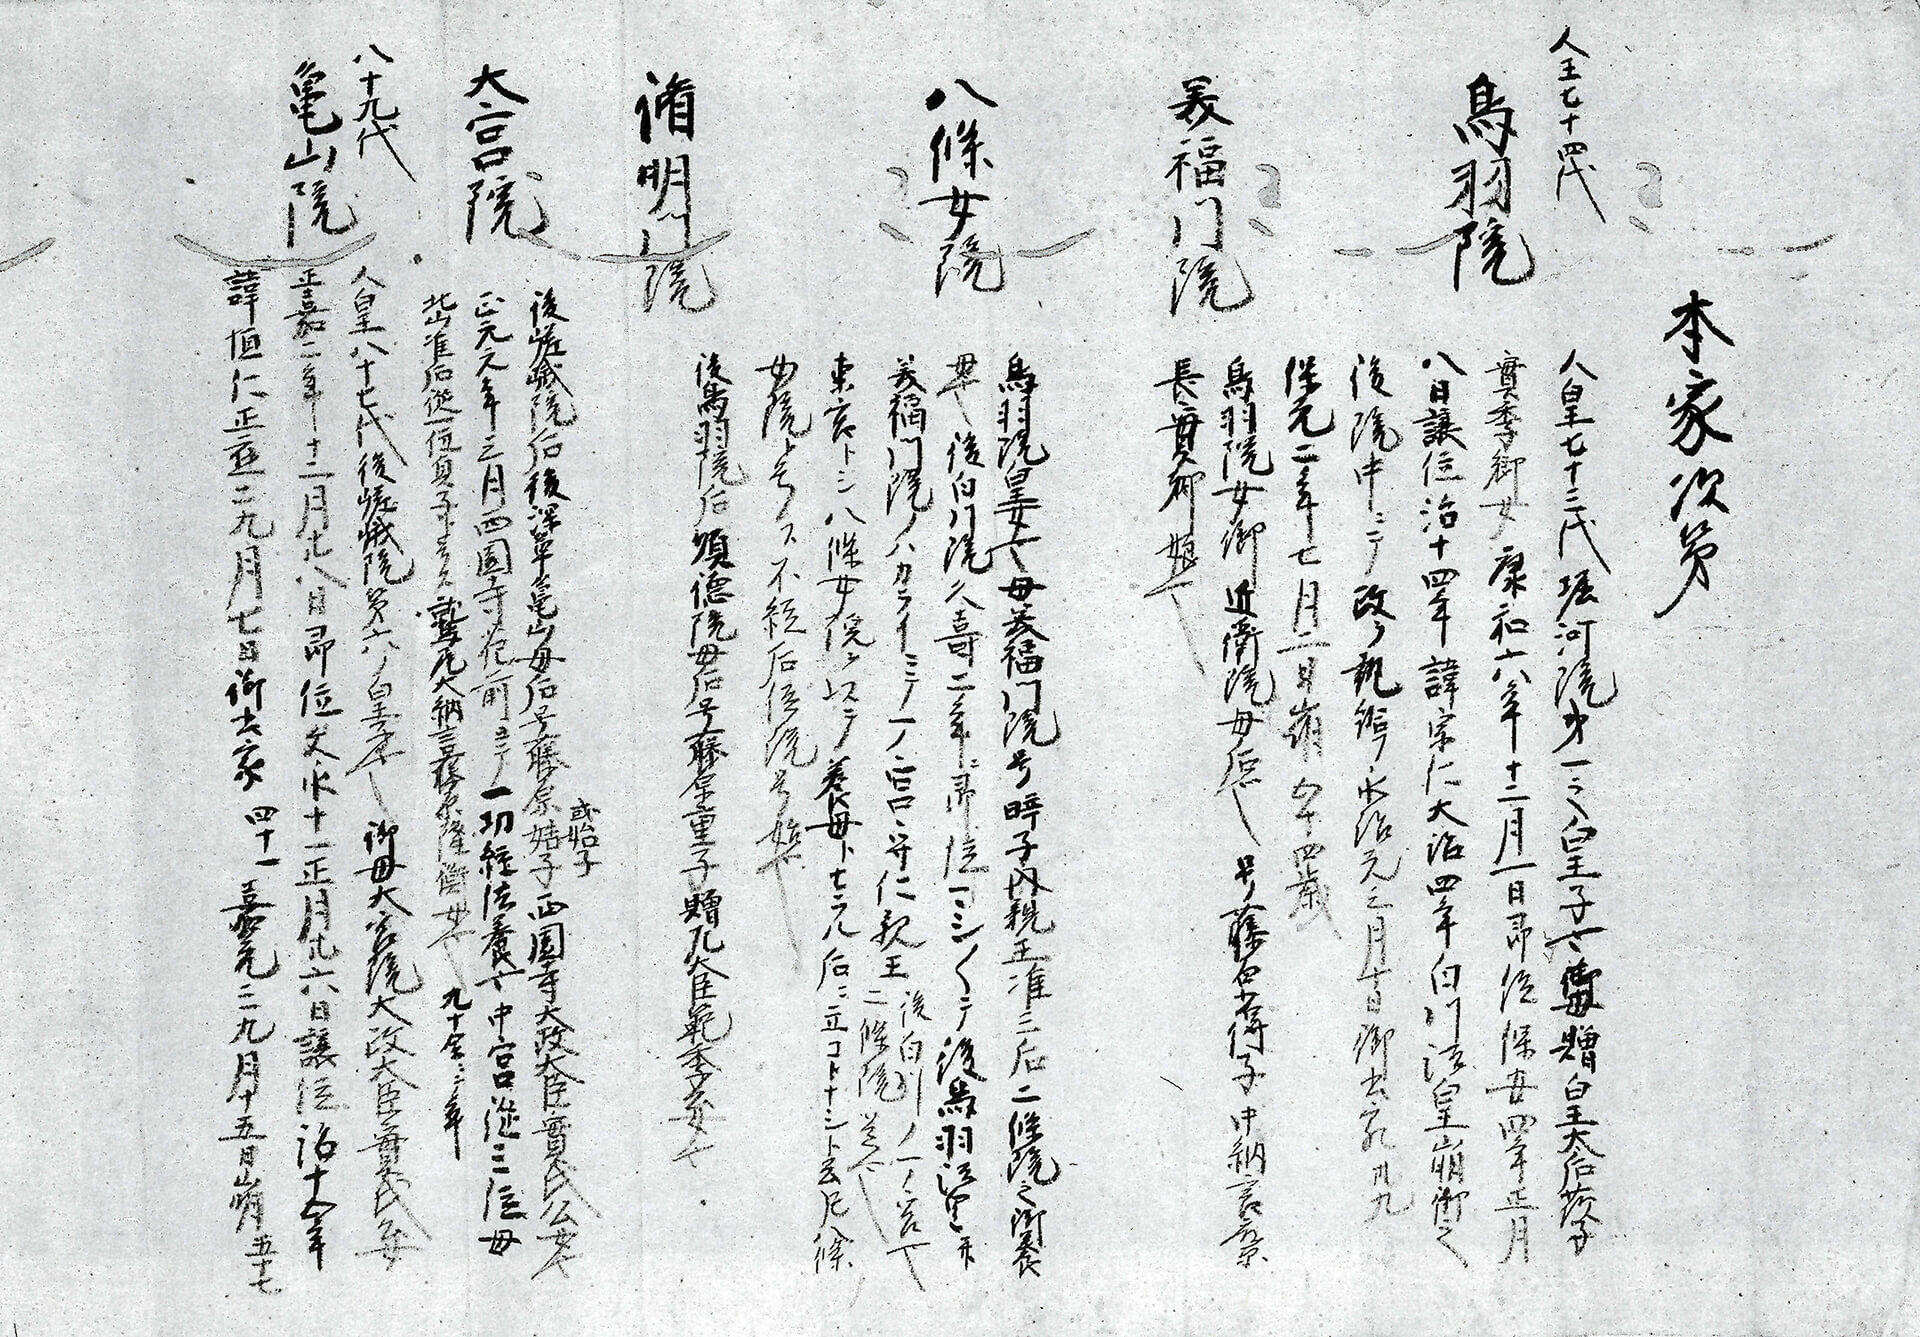 本家次第
人王七十四代
鳥羽院
人皇七十三代堀河院第一ノ皇子也御母贈皇太后茨子
實季卿女康和六八年十二月一日即位保安四年正月
八日讓位治十四年諱宗仁大治四年白川法皇崩御之
後院中ニテ改 永治元之月十日御出家卅九
保元二年七月二日崩 五十四歳
美福門院
鳥羽院女御近衛院母后也 号藤原得子中納言
長實卿娘也
八條女院
鳥羽院皇女也母美福門院号暲子内親王准三后二條院之御養
母也後白川院久壽二年ニ即位マシ〱テ後鳥羽法皇并
美福門院ノハカライニテ一ノ宮守仁親王後白川ノ一ノ宮也二條院是也
東宮トシ八條女院ヲ以テ養母ト 后ニ立コトナシト云凡條
女院ト号ス不經后位院号始也
脩明門院
後鳥羽院后順徳院母后号藤原重子贈左大臣範季女也
大宮院
後嵯峨院后後深草亀山母后号藤原姞子或怡子西園寺太政大臣實氏公女也
正元元年三月西園寺花前ニテ一切経法養也中宮従三位母
北山准后従一位貞子ト号ス鷲尾大納言藤原隆衡女也 九十余ニ年
八十九代
亀山院
人皇八十七代後嵯峨院第六ノ皇子也御母大宮院大政大臣實氏女
正嘉二年十二月廿八日即位文永十一正月廿六日讓位治十六年
諱恒仁正應二九月七日御出家四十一嘉元三九月十五日崩五十七